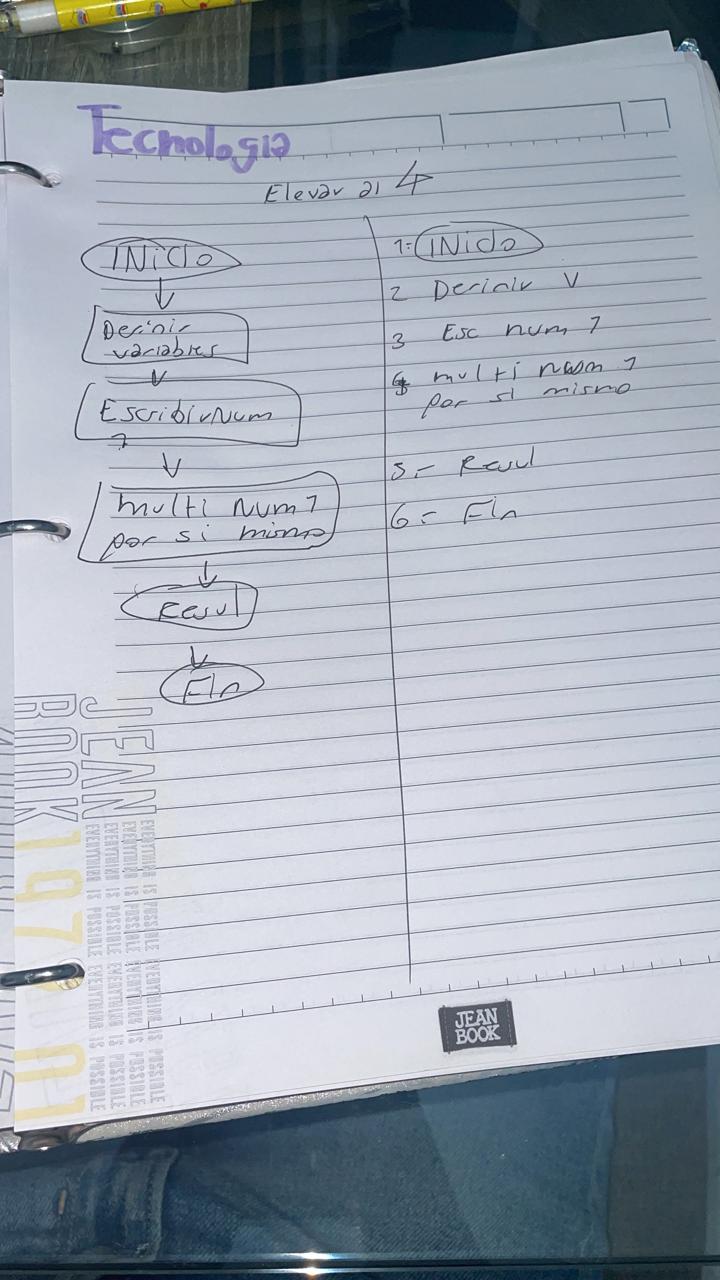 Tecnologia
Elevar al 4
INicio
Definir
variables
Escribir Num
1
multi Num 1
por si mismo
Resul
Fin
1= INicio
2 Definir V
3 Esc num 1
4 multi num 1
por si mismo
5 - Resul
6 = Fin
JEAN
BOOK
197
EVERYTHING IS POSSIBLE EVERYTHING IS POSSIBLE
EVERYTHING IS POSSIBLE EVERYTHING IS POSSIBLE
EVERYTHING IS POSSIBLE EVERYTHING IS POSSIBLE
EVERYTHING IS POSSIBLE EVERYTHING IS POSSIBLE
JEAN
BOOK